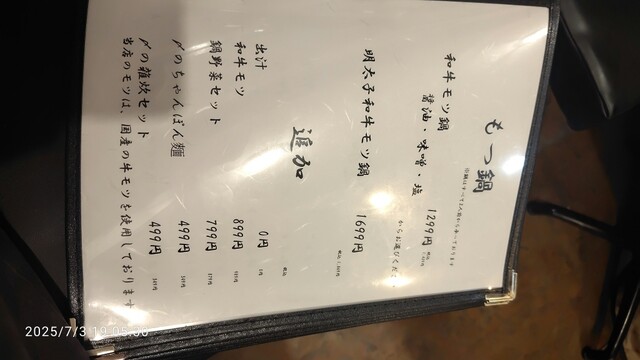 もつ鍋
和牛モツ鍋 1299円
醤油・味噌・塩
からお選びください
明太子和牛モツ鍋 1699円
追加
出汁 0円
和牛モツ 899円
鍋野菜セット 799円
〆のちゃんぽん麺 499円
〆の雑炊セット 499円
当店のモツは、国産の牛モツを使用しております
2025/7/3 19:05:00